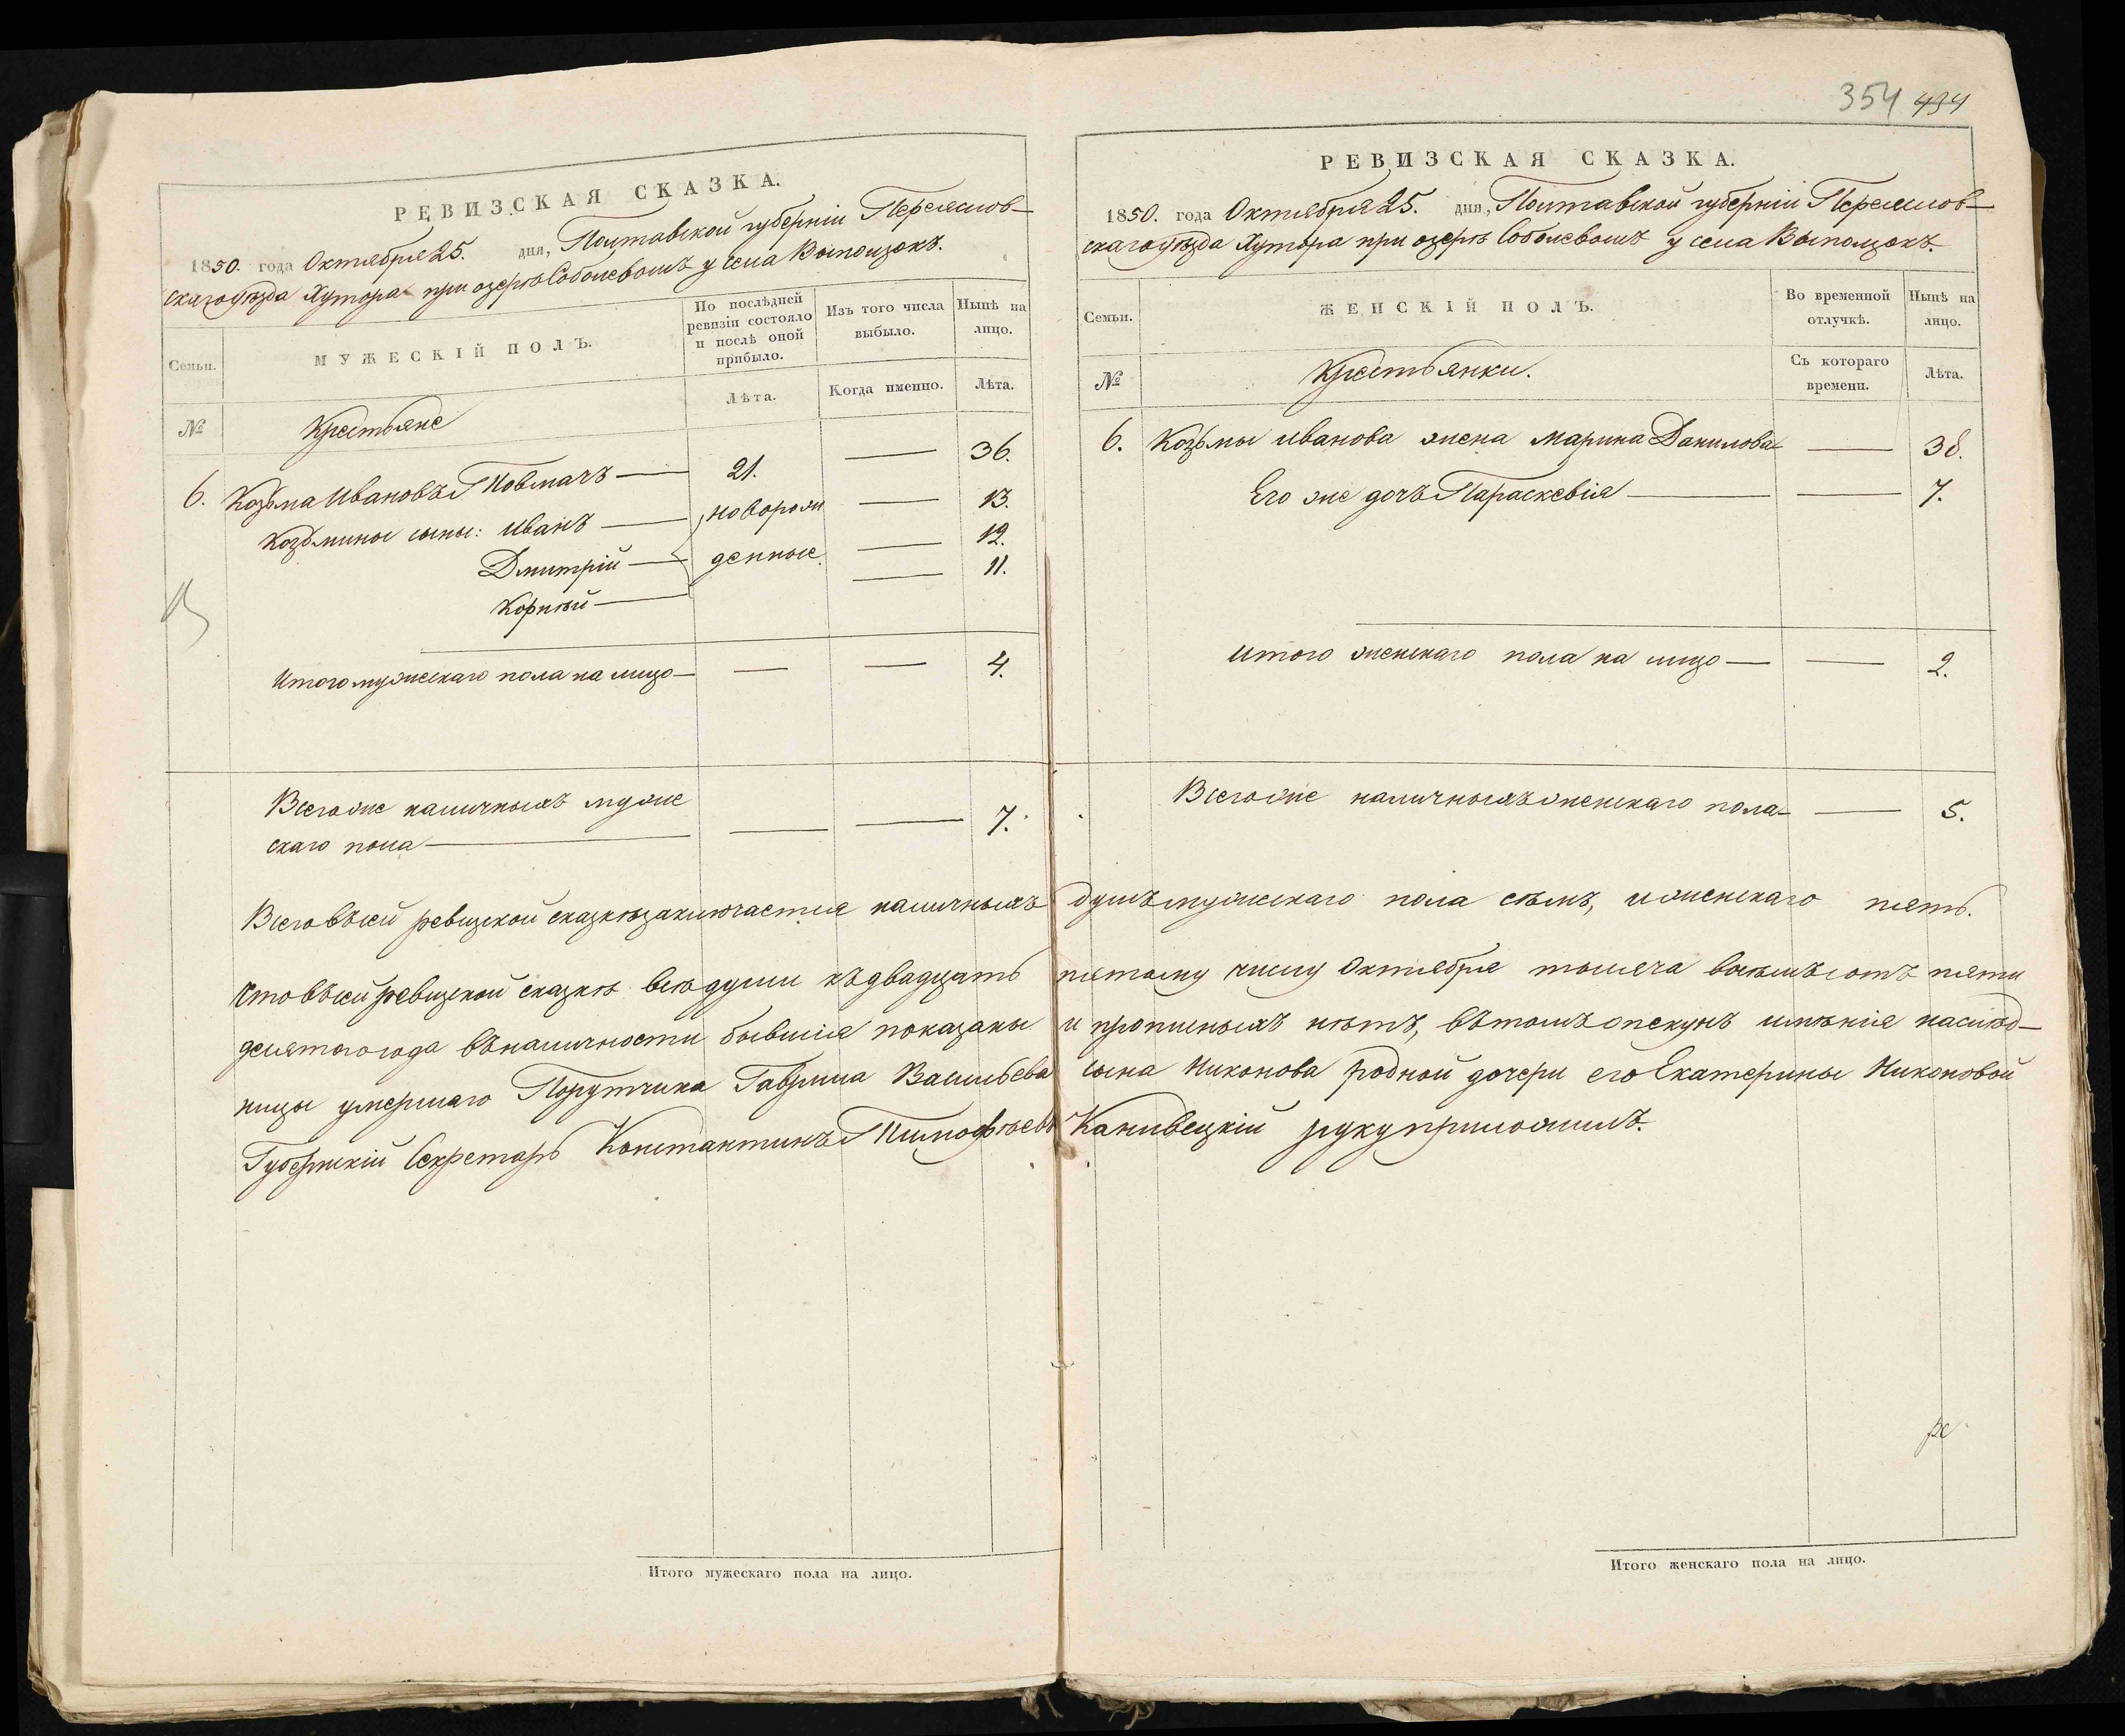 354 494
РЕВИЗСКАЯ СКАЗКА.
1850. года Октября 25. дня, Полтавской губерніи Переяслов-
скаго уѣзда Хутора при озерѣ Соболевомъ у села Выползокъ.
Семьи.
МУЖЕСКІЙ ПОЛЪ.
По послѣдней ревизіи состояло и послѣ оной прибыло.
Изъ того числа выбыло.
Нынѣ на лицо.
№
Крестьяне
Лѣта.
Когда именно.
Лѣта.
6. Козьма Ивановъ Товмачъ — 21. — 36.
Козьмины сыны: Иванъ — новорож — 13.
Дмитрій — денные. — 12.
Корнѣй — — 11.
Итого мужескаго пола на лицо — — — 4.
Всего же наличныхъ муже
скаго пола — — — 7.
РЕВИЗСКАЯ СКАЗКА.
1850. года Октября 25. дня, Полтавской губерніи Переяслов-
скаго уѣзда Хутора при озерѣ Соболевомъ у села Выползокъ.
Семьи.
ЖЕНСКІЙ ПОЛЪ.
Во временной отлучкѣ.
Нынѣ на лицо.
№
Крестьянки.
Съ котораго времени.
Лѣта.
6. Козьмы Иванова жена Марина Данилова — 38.
Его же дочъ Параскевія — — 7.
Итого женскаго пола на лицо — — 2.
Всего же наличныхъ женскаго пола — — 5.
Всего въ сей ревизской сказкѣ заключается наличныхъ душъ мужескаго пола сѣмъ, и женскаго пять.
Что въ сей ревизской сказкѣ всѣ души къ двадцать пятому числу Октября тысяча восѣмъ сотъ пяти
десятого года въ наличности бывшія показаны и прописныхъ нѣтъ, въ томъ опекунъ имѣнія наслѣд-
ницы умершаго Порутчика Гаврила Васильева сына Никонова родной дочери его Екатерины Никоновой
Губернскій Секретарь Константинъ Тимофѣевъ Канивецкій руку приложилъ.
Итого мужескаго пола на лицо.
Итого женскаго пола на лицо.